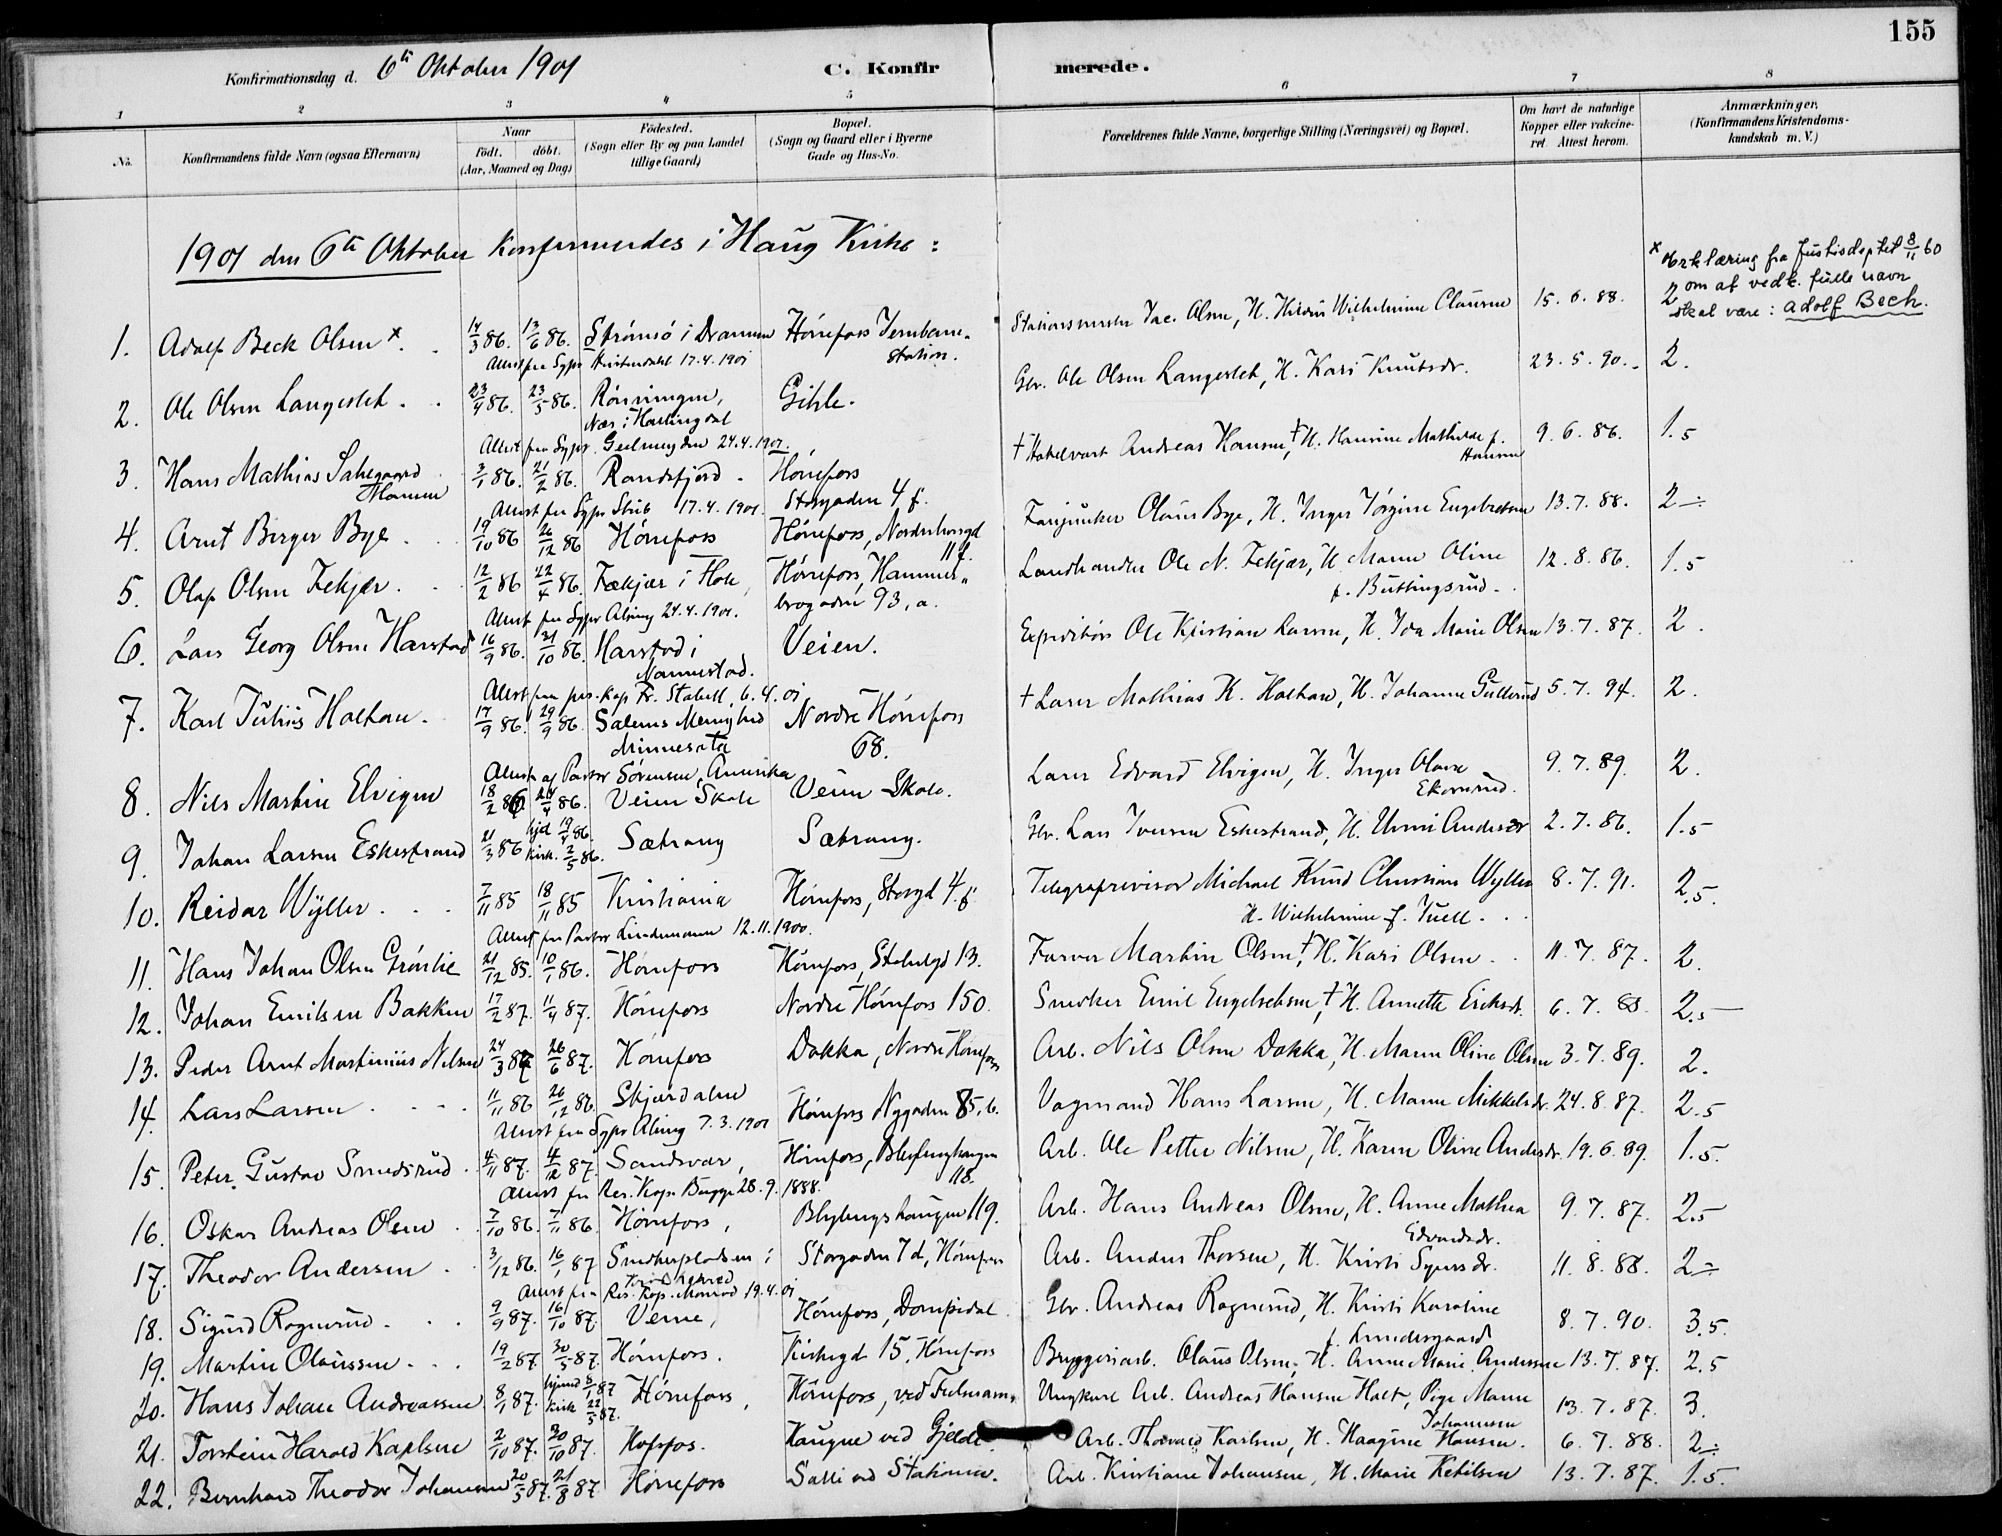 155
Konfirmationsdag d. 6te Oktober 1901
C. Konfirmerede.
1 2 3 4 5 6 7 8
No.
Konfirmandens fulde Navn (ogsaa Efternavn)
Naar
født. døbt.
(Aar, Maaned og Dag)
Fødested.
(Sogn eller By og paa Landet
tillige Gaard)
Bopæl.
(Sogn og Gaard eller i Byerne
Gade og Hus-No.
Forældrenes fulde Navne, borgerlige Stilling (Næringsvei) og Bopæl.
Om havt de naturlige
Kopper eller vakcine-
ret. Attest herom.
Anmærkninger.
(Konfirmandens Kristendoms-
kundskab m. V.)
1901 den 6te Oktober Konfirmerdes i Haug Kirke:
x Erklæring fra Justisdeptet 8/11 60
om at vedk. fulle navn
skal være: Adolf Beck.
1. Adolf Beck Olsen x. 14/3 86. 13/6 86. Strømsø i Drammen Hønefoss Jernbane- Stationsmester Jac. Olsen, H. Hilda Wilhelmine Clausen 15. 6. 88. 2
station.
Attest fra Sgpr 17.4.1901
2. Ole Olsen Langeslet. 23/4 86. 23/5 86. Rønningen, Gihle. Gbr. Ole Olsen Langeslet, H. Kari Knutsdr. 23. 5. 90. 2.
Næs i Hallingdal
Attest fra Sgpr. 24.4.1901.
3. Hans Mathias Hansen 3/1 86. 21/2 86. Randsfjord. Hønefoss † Andreas Hansen, † H. Hansine Mathilde f. Hansen 9. 6. 86. 1.5
Storgaden 4 f.
Attest fra Sgpr 17.4.1901.
4. Arnt Birger Bye. 19/10 86 26/12 86 Hønefoss Hønefoss, 11 f. Fanejunker Olaus Bye, H. Inger Jørgine Engebretsen 13. 7. 88. 2 ÷
5. Olaf Olsen Fekjær. 12/2 86 22/4 86. Fækjær i Hole, Hønefoss, Hammer- Landhandler Ole N. Fekjær, H. Maren Oline 12. 8. 86. 1.5
brogaden 93, a. f. Buttingsrud.
Attest fra Sgpr 24.4.1901.
6. Lars Georg Olsen Harstad 16/9 86. 31/10 86. Harstad i Veien. Expeditør Ole Kristian Larsen, H. Ida Marie Olsen 13. 7. 87. 2.
Nannestad.
Attest fra pers. kap. Fr. Stabell, 6.4.01
7. Karl Julius Holtan. 17/9 86. 29/9 86. Salems Menighed Nordre Hønefoss † Lærer Mathias K. Holtan, H. Johanne Gulterud 5. 7. 94. 2.
Minnesota 68.
Attest af Pastor Sørensen, Amerika
8. Nils Martin Elvigen 18/2 86 24/4 86. Veien Skole Veien Skole. Lærer Edvard Elvigen, H. Inger Olava 9. 7. 89. 2.
Ekornrud.
9. Johan Larsen Eskestrand 21/3 86 hjd 19/4 86. Kirk. 2/5 86. Sætrang Sætrang. Gbr. Lars Iversen Eskestrand, H. Andersdr 2. 7. 86. 1.5
10. Reidar Wyller. 7/11 85 18/11 85 Kristiania Hønefoss, Storgd 4 f. Telegrafrevisor Michael Knud Christian Wyller 8. 7. 91. 2.5.
H. Wilhelmine f. Juell.
Attest fra Pastor Lindemann 12.11.1900.
11. Hans Johan Olsen Grønlie 21/12 85. 10/1 86. Hønefoss Hønefoss, Stabelgd 13. Farver Martin Olsen, † H. Kari Olsen. 11. 7. 87. 2.
12. Johan Emilsen Bakken 17/2 87. 11/4 87. Hønefoss Nordre Hønefoss 150. Snedker Emil Engebretsen, † H. Annette Eriksdr. 6. 7. 88. 2.5
13. Peder Arnt Martinius Nilsen 24/3 87 26/6 87. Hønefoss Dokka, Nordre Hønefoss Arb. Nils Olsen Dokka, H. Maren Oline Olsen 3. 7. 89. 2.
14. Lars Larsen. 11/11 86 26/12 86. Skjærdalen Hønefoss Nygaden 85, b. Vogmand Hans Larsen, H. Maren Mikkelsdr. 24. 8. 87. 2.5
Attest fra Sgpr 7.3.1901
15. Peter Gustav Smedsrud. 4/11 87. 4/12 87. Sandsvær, Hønefoss, 118. Arb. Ole Petter Nilsen, H. Karen Oline Andersdr. 19. 6. 89. 1.5.
Attest fra Res. Kap. Bugge 28.9.1888.
16. Oskar Andreas Olsen. 7/10 86. 7/11 86. Hønefoss, Blybergshaugen 119. Arb. Hans Andreas Olsen, H. Anne Mathea 9. 7. 87. 2.5
Edvardsdr.
17. Theodor Andersen. 3/12 86. 16/1 87 Snedkerpladsen i Storgaden 7 d, Hønefoss Arb. Anders Thorsen, H. Kristi Syversdr. 11. 8. 88. 2 ÷
Attest fra Res. Kap. 19.4.01
18. Sigurd Rognerud. 9/9 87. 16/10 87. Verne, Hønefoss, Dompidal. Gbr. Andreas Rognerud, H. Kristi Karoline 8. 7. 90. 3.5.
f. Lundesgaard
19. Martin Olaussen. 19/2 87. 30/5 87. Hønefoss. Kirkegd 15, Hønefoss Bryggeriarb. Olaus Olsen, H. Anne Marie Andersen 13. 7. 87. 2.5
20. Hans Johan Andreassen 8/1 87. hjemd 8/1 87 Kirk 22/5 87. Hønefoss, Hønefoss, ved Ungkarl Arb. Andreas Hansen Holt, Pige Maren 13. 7. 87. 3.
Johannesen
21. Torstein Harald Karlsen 2/10 87. 30/10 87. Hofsfos. Haugen ved Gjelde. Arb. Thorvald Karlsen, H. Haagine Hansen. 6. 7. 88. 2 ÷
22. Bernhard Theodor Johansen 20/5 87. 21/8 87 Hønefoss Sætli ved Stationen. Arb. Kristian Johansen, H. Marie Ketilsen 13. 7. 87. 1.5.